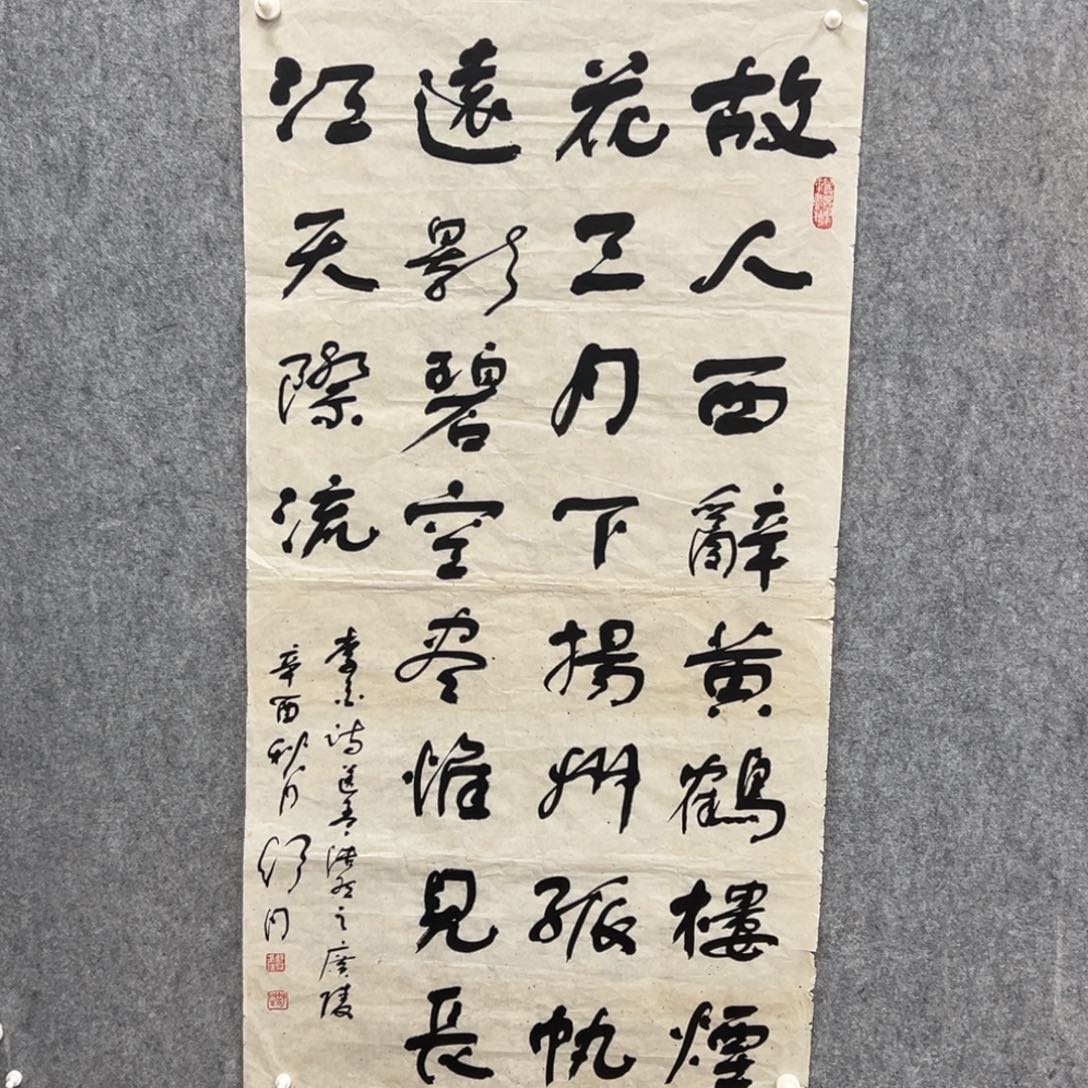 故人西辭黃鶴樓煙
花三月下揚州孤帆
遠影碧空盡惟見長
江天際流
李白詩送孟浩然之廣陵
辛酉秋月舒同